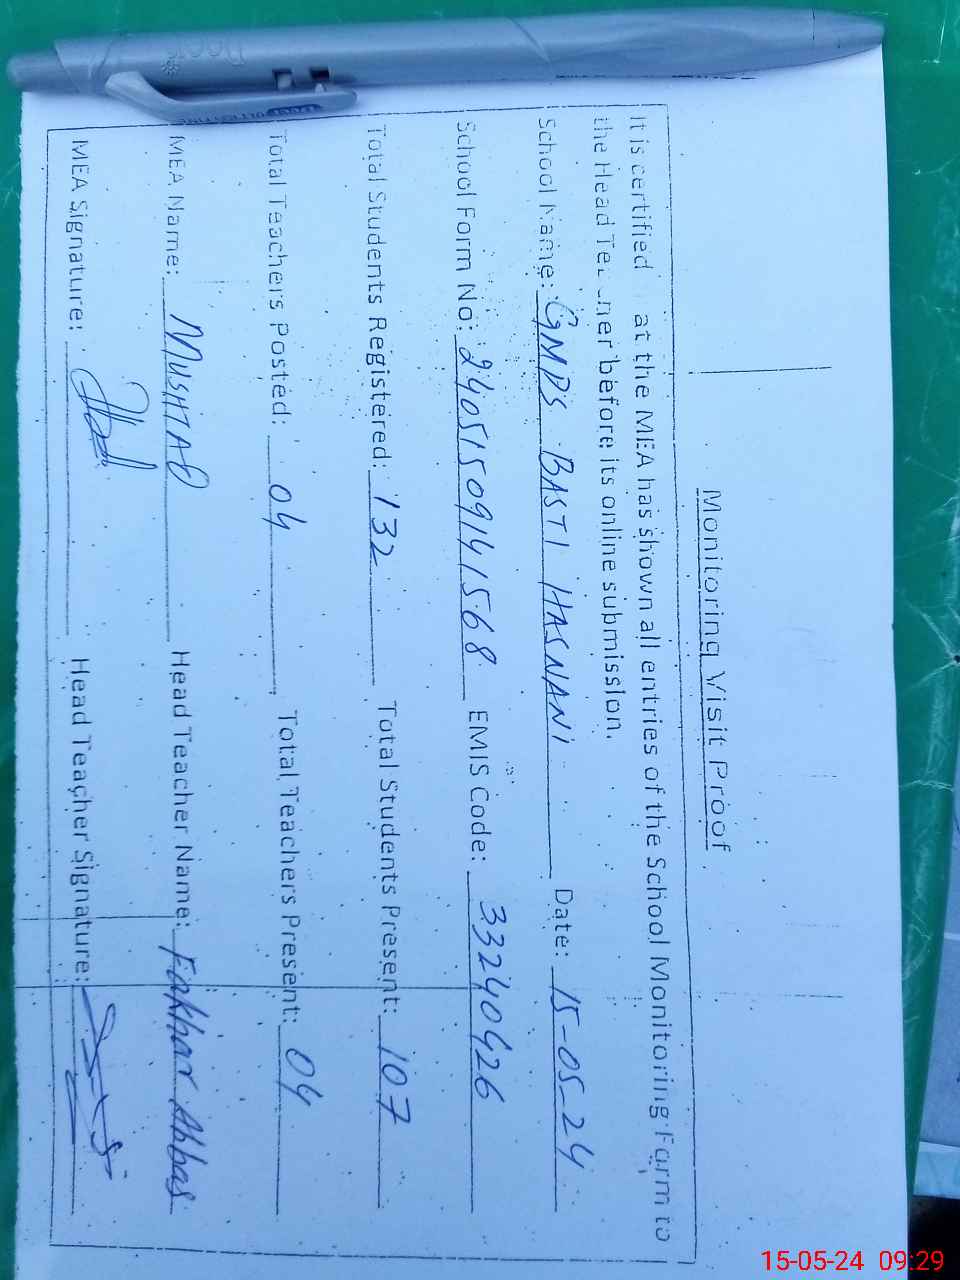 Monitoring Visit Proof
It is certified at the MEA has shown all entries of the School Monitoring Form to
the Head before its online submission.
School Name: GMPS BASTI HASNANI Date: 15-05-24
School Form No: 24051509141568 EMIS Code: 33240426
Total Students Registered: 132 Total Students Present: 107
Total Teachers Posted: 04 Total Teachers Present: 04
MEA Name: MUSHTAQ Head Teacher Name: Fakhar Abbas
MEA Signature: Head Teacher Signature:
15-05-24 09:29